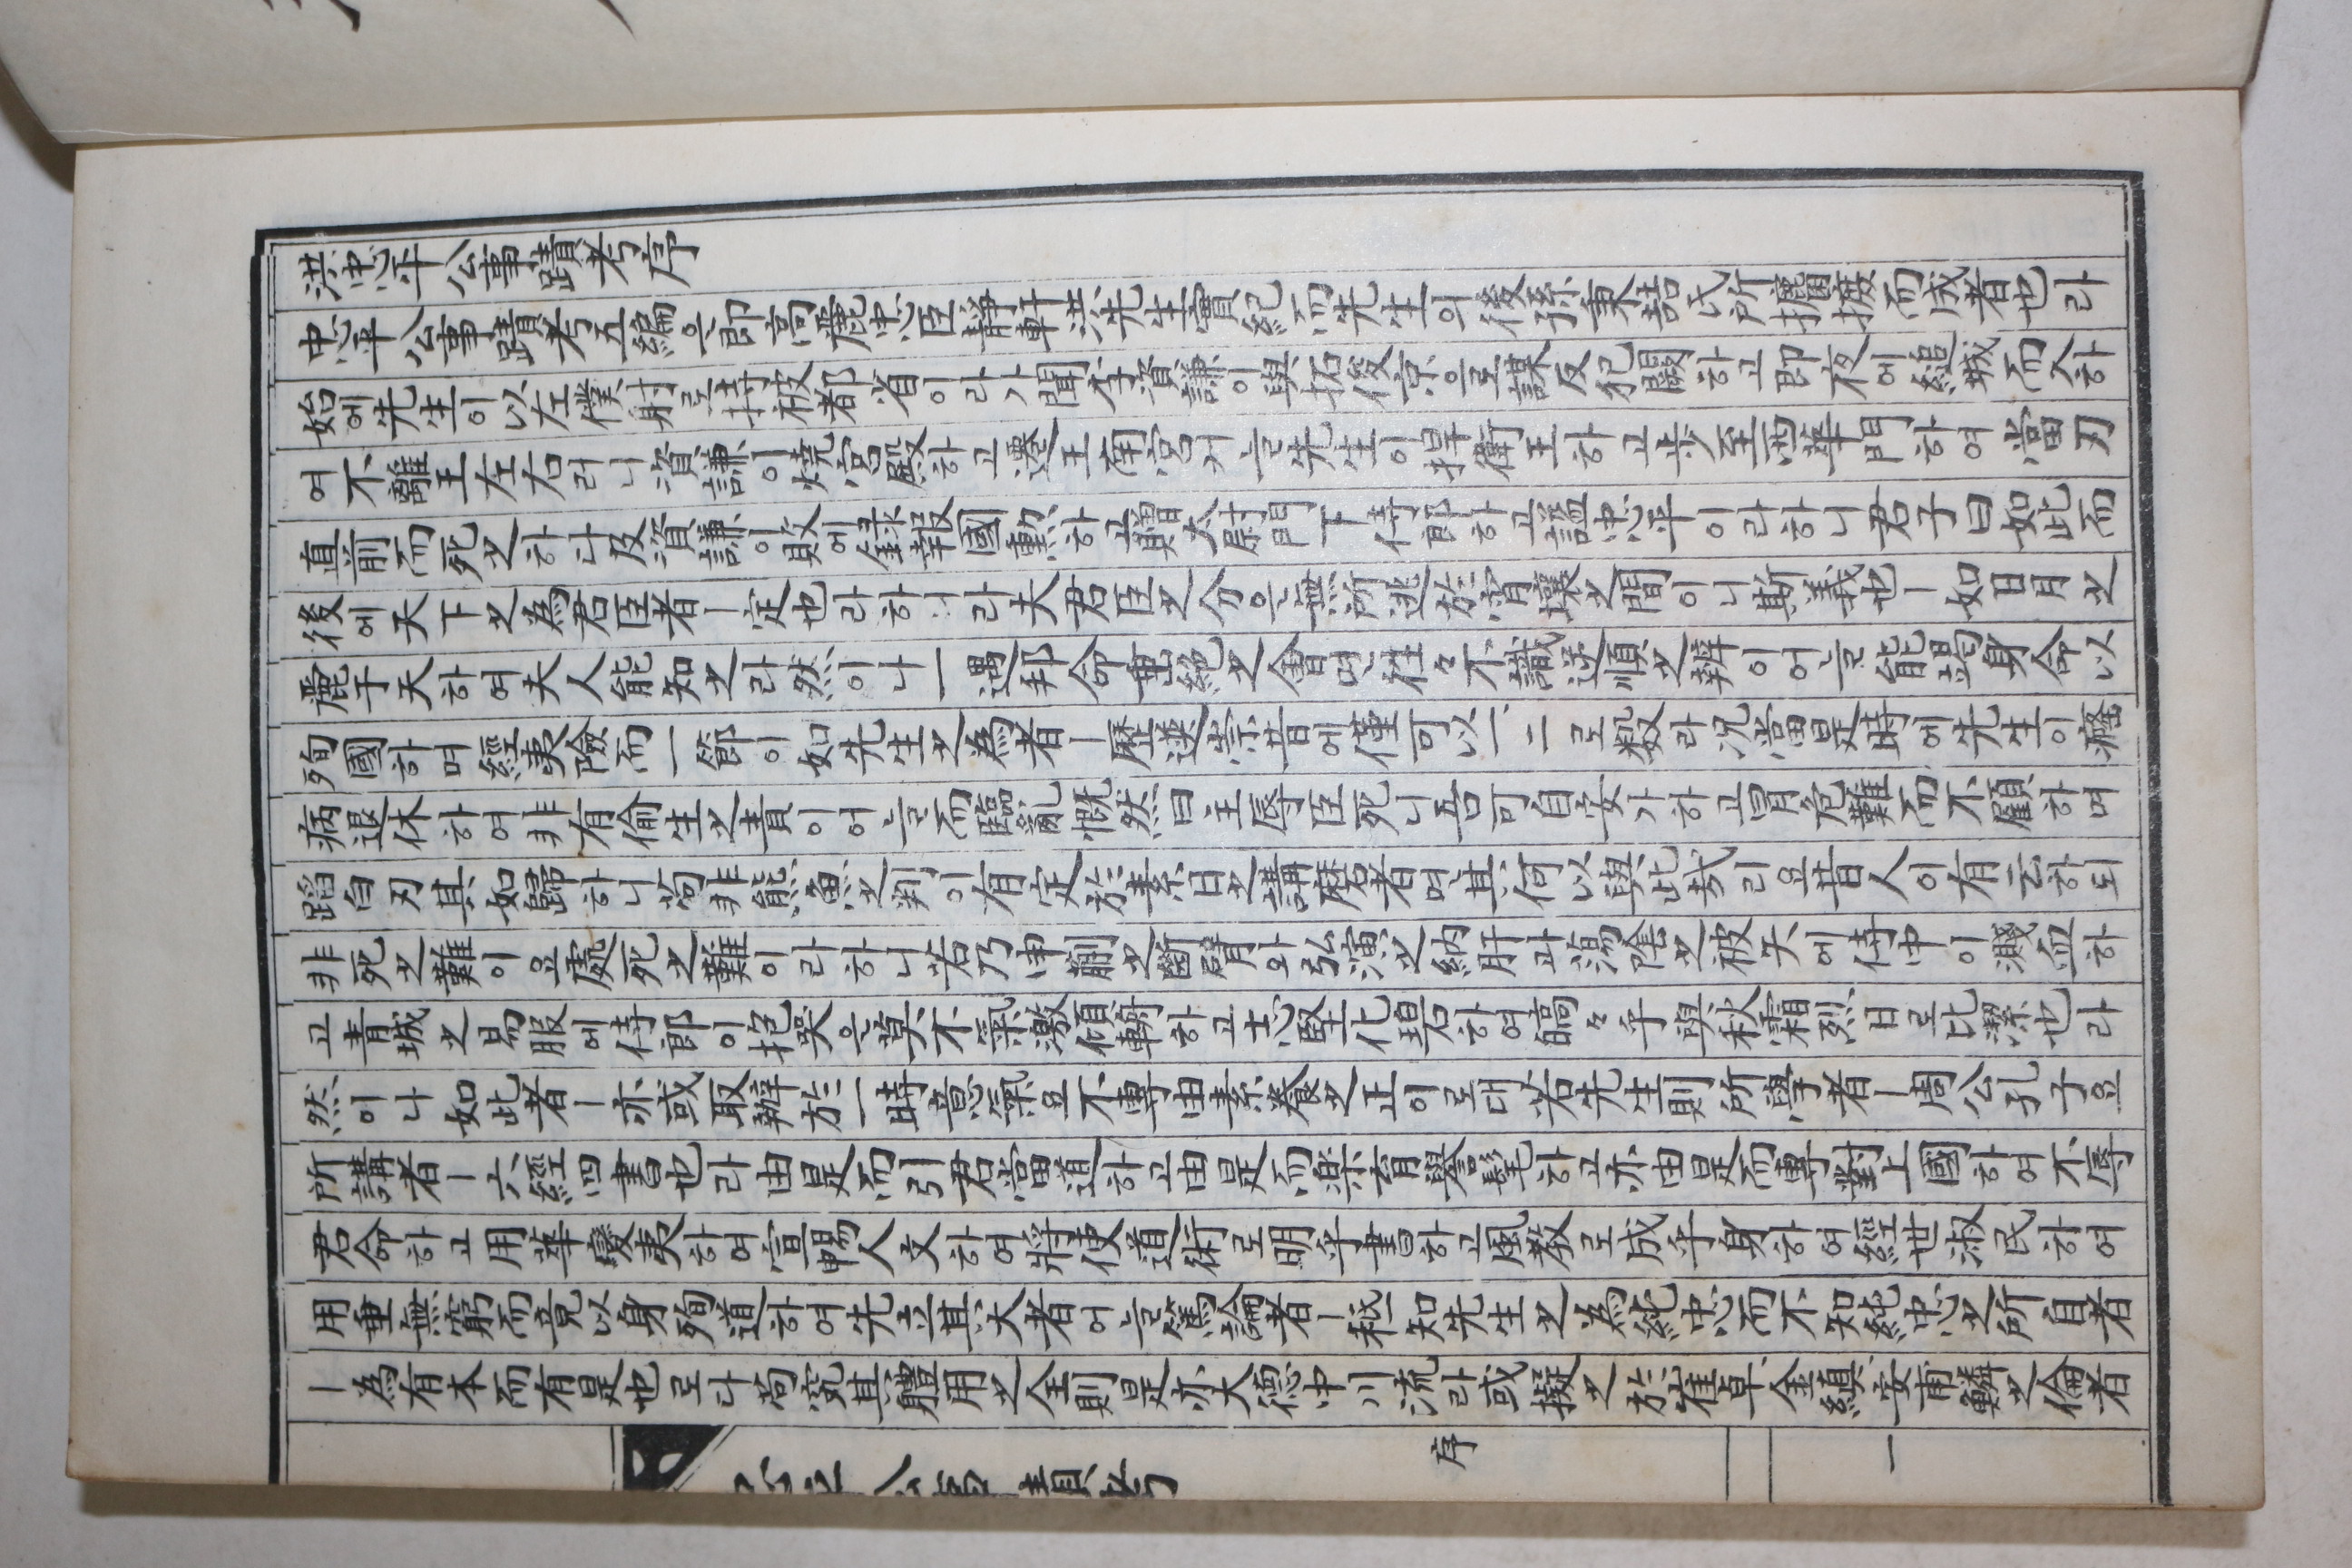 洪忠平公事蹟考序
忠平公事蹟考五編은即高麗忠臣靜軒洪先生實紀而先生의後孫秉喆氏所攟摭而成者也라
始에先生이以左僕射로持被都省이라가聞李資謙이與拓俊京으로謀反犯闕하고即夜에縋城而入하
여不離王左右러니資謙이燒宮殿하고遷王南宮커늘先生이捍衛王하고步至西華門하여當刃
直前而死之하다及資謙이敗에録報國勲하고贈太尉門下侍郎하고謚忠平이라하니君子曰如此而
後에天下之為君臣者ㅣ定也라하니라夫君臣之分은無所逃於霄壤之間이니斯義也ㅣ如日月之
麗于天하여夫人能知之라然이나一遇邦命垂絶之會면往々不識逆順之辨이어늘能竭身命以
殉國하며經夷險而一節이如先生之為者ㅣ歷選崇昔에僅可以一、二로数라况當是時에先生이癃
病退休하여非有偷生之責이어늘而臨亂慨然曰主辱臣死니吾可自安가하고冒危難而不顧하며
蹈白刃其如歸하니苟非熊魚之判이有定於素日之講磨者면其何以與此哉리요昔人이有云하되
非死之難이요處死之難이라하니若乃申蒯之斷臂와弘演之納肝과蕩陰之被矢에侍中이濺血하
고青城之易服에侍郎이抱哭은莫不氣激傾輈하고志堅化碧하여皜々乎與秋霜烈日로比潔也라
然이나如此者ㅣ亦或取辦於一時意氣요不專由素養之正이로대若先生則所學者ㅣ周公孔子요
所講者ㅣ六經四書也라由是而引君當道하고由是而楽育譽髦하고亦由是而專對上國하여不辱
君命하고用華變夷하여宣暢人文하여將使道術로明乎書하고風教로成乎身하여經世淑民하여
用垂無窮而竟以身殉道하여先立其大者어늘篤論者ㅣ秪知先生之為純忠而不知純忠之所自者
ㅣ為有本而有是也로다苟究其體用之全則是亦大德中川流라或擬之於崔卓、金縝、安甫鱗之倫者
忠平公事蹟考
序
一